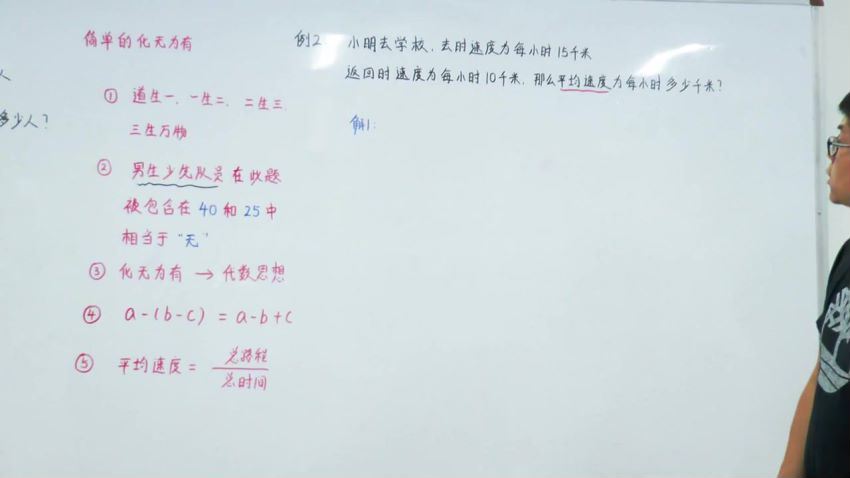 人
多少人？
简单的化无为有
① 道生一、一生二、二生三、
三生万物
② 男生少先队员在此题
被包含在 40 和 25 中
相当于 "无"
③ 化无为有 → 代数思想
④ a-(b-c) = a-b+c
⑤ 平均速度 = 总路程
总时间
例2. 小明去学校，去时速度为每小时15千米
返回时速度为每小时10千米，那么平均速度为每小时多少千米？
解1：